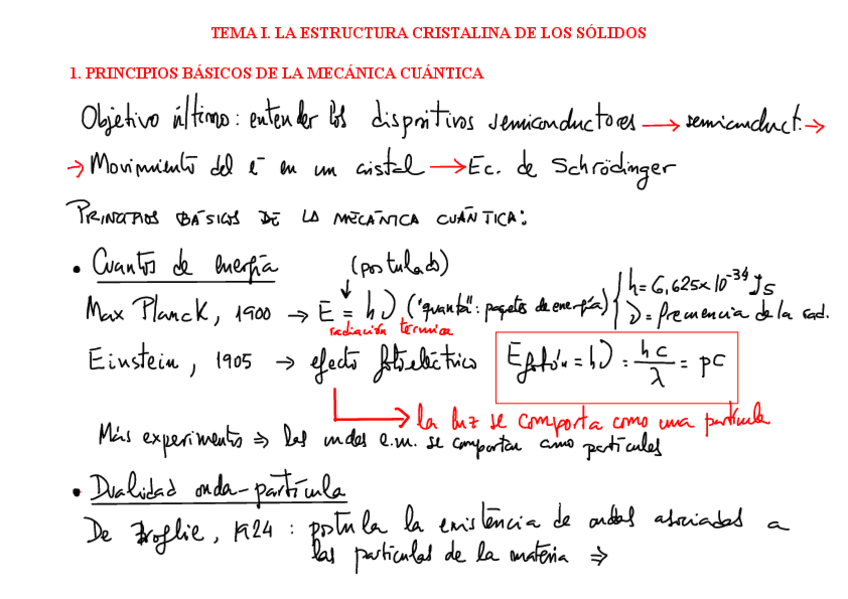 TEMA I. LA ESTRUCTURA CRISTALINA DE LOS SÓLIDOS
1. PRINCIPIOS BÁSICOS DE LA MECÁNICA CUÁNTICA
Objetivo último: entender los dispositivos semiconductores → semiconduct. →
→ Movimiento del e⁻ en un cristal → Ec. de Schrödinger
PRINCIPIOS BÁSICOS DE LA MECÁNICA CUÁNTICA:
• Cuantos de energía (postulado)
Max Planck, 1900 → E = hν ("quanta": paquetes de energía) { h = 6,625×10⁻³⁴ Js
ν = frecuencia de la rad.
radiación térmica
Einstein, 1905 → efecto fotoeléctrico E fotón = hν = hc/λ = pc
→ la luz se comporta como una partícula
Más experimentos ⇒ las ondas e.m. se comportan como partículas
• Dualidad onda-partícula
De Broglie, 1924 : postula la existencia de ondas asociadas a
las partículas de la materia ⇒